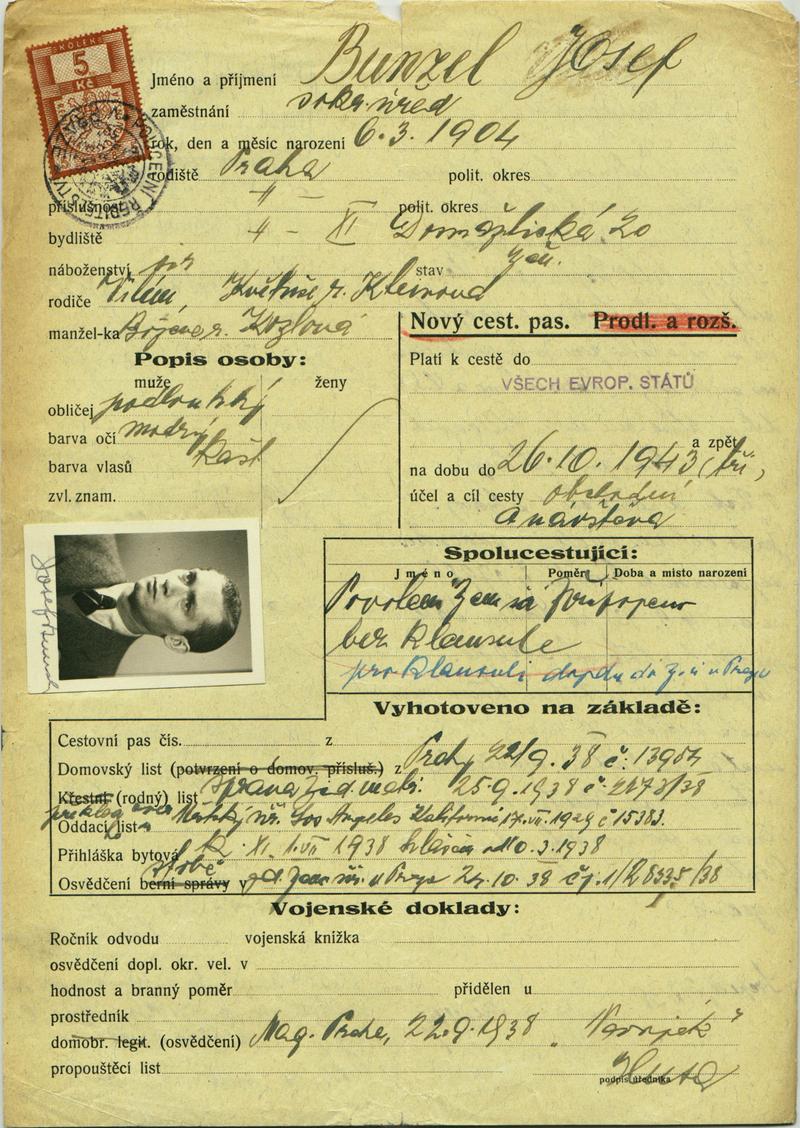 KOLEK
5
Kč
POLICEJNÍ ŘEDITELSTVÍ V PRAZE
Jméno a příjmení Bunzel Josef
zaměstnání soukr. úřed
rok, den a měsíc narození 6.3.1904
rodiště Praha polit. okres
příslušnost -"- polit. okres
bydliště -"- XI Domažlická 20
náboženství stav žen.
rodiče Vilém, r. Kleinová
manžel-ka Božena r. Kozlová
Nový cest. pas. Prodl. a rozš.
Popis osoby:
muže ženy
obličej podlouhlý
barva očí modrý
barva vlasů kašt
zvl. znam.
Platí k cestě do
VŠECH EVROP. STÁTŮ
a zpět
na dobu do 26.10.1943 (tři)
účel a cíl cesty obchodní
a návštěva
Spolucestující:
Jméno Poměr Doba a místo narození
bez klausule
pro klausuli
Vyhotoveno na základě:
Cestovní pas čís. z
Domovský list (potvrzení o domov. přísluš.) z Prahy 22/9.38 č. 13904
Křestní (rodný) list Správa žid. matr. 25.9.1938 č. 2173/38
Oddací list Los Angeles Kalifornie 17.VII.1929 č 15383.
Přihláška bytová XI. 1.VII 1938
Osvědčení berní správy v Praze 24.10.38 čj. 1/
Vojenské doklady:
Ročník odvodu vojenská knížka
osvědčení dopl. okr. vel. v
hodnost a branný poměr přidělen u
prostředník
domobr. legit. (osvědčení) Mag. Praha, 22.9.1938
propouštěcí list
podpis úředníka